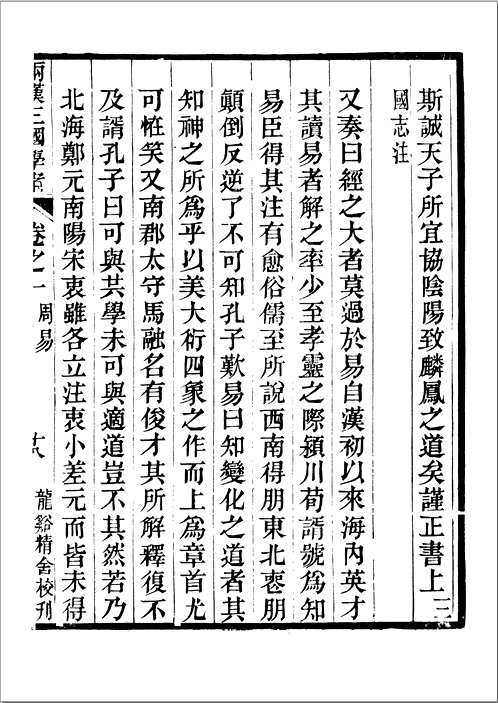 斯誠天子所宜協陰陽致麟鳳之道矣謹正書上三
國志注
又奏曰經之大者莫過於易自漢初以來海內英才
其讀易者解之率少至孝靈之際潁川荀諝號為知
易臣得其注有愈俗儒至所說西南得朋東北喪朋
顛倒反逆了不可知孔子歎易曰知變化之道者其
知神之所為乎以美大衍四象之作而上為章首尤
可怪笑又南郡太守馬融名有俊才其所解釋復不
及諝孔子曰可與共學未可與適道豈不其然若乃
北海鄭元南陽宋衷雖各立注衷小差元而皆未得
兩漢三國學案
卷之一
周易
十八
龍谿精舍校刊